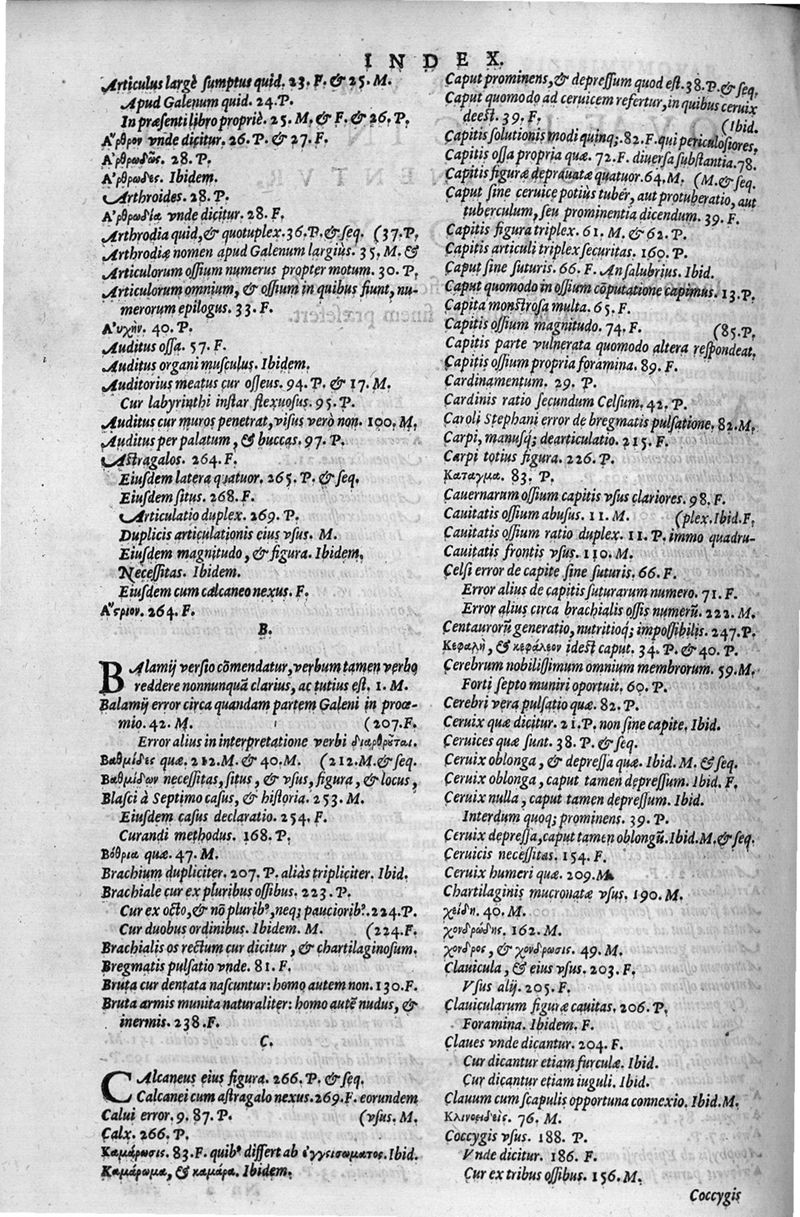 INDEX.
Articulus largè sumptus quid. 23. F. & 25. M.
Apud Galenum quid. 24. P.
In præsenti libro propriè. 25. M. & F. & 26. P.
Α῎ρθρον vnde dicitur. 26. P. & 27. F.
Α᾿ρθρωδῶς. 28. P.
Α᾿ρθρωδες. Ibidem.
Arthroides. 28. P.
Α᾿ρθρωδία vnde dicitur. 28. F.
Arthrodia quid, & quotuplex. 36. P. & seq. (37. P.
Arthrodiæ nomen apud Galenum largius. 35, M. &
Articulorum ossium numerus propter motum. 30. P.
Articulorum omnium, & ossium in quibus fiunt, nu-
merorum epilogus. 33. F.
Α᾿υχήν. 40. P.
Auditus ossa. 57. F.
Auditus organi musculus. Ibidem.
Auditorius meatus cur osseus. 94. P. & 17. M.
Cur labyrinthi instar flexuosus. 95. P.
Auditus cur muros penetrat, visus verò non. 100. M.
Auditus per palatum, & buccas. 97. P.
Astragalos. 264. F.
Eiusdem latera quatuor. 265. P. & seq.
Eiusdem situs. 268. F.
Articulatio duplex. 269. P.
Duplicis articulationis eius vsus. M.
Eiusdem magnitudo, & figura. Ibidem.
Necessitas. Ibidem.
Eiusdem cum calcaneo nexus. F.
Α῎τριον. 264. F.
B.
BAlamij versio cõmendatur, verbum tamen verbo
reddere nonnunquã clarius, ac tutius est. 1. M.
Balamij error circa quandam partem Galeni in proœ-
mio. 42. M. (207. F.
Error alius in interpretatione verbi διαρθρῦται.
Βαθμίδες quæ. 212. M. & 40. M. (212. M. & seq.
Βαθμίδων necessitas, situs, & vsus, figura, & locus,
Blasci à Septimo casus, & historia. 253. M.
Eiusdem casus declaratio. 254. F.
Curandi methodus. 168. P.
Βόθρια quæ. 47. M.
Brachium dupliciter. 207. P. aliàs tripliciter. Ibid.
Brachiale cur ex pluribus ossibus. 223. P.
Cur ex octo, & nõ plurib⁹, neq; paucioribꝰ. 224. P.
Cur duobus ordinibus. Ibidem. M. (224. F.
Brachialis os rectum cur dicitur, & chartilaginosum.
Bregmatis pulsatio vnde. 81. F.
Bruta cur dentata nascuntur: homo autem non. 130. F.
Bruta armis munita naturaliter: homo autẽ nudus, &
inermis. 238. F.
C.
CAlcaneus eius figura. 266. P. & seq.
Calcanei cum astragalo nexus. 269. F. eorundem
Calui error. 9. 87. P. (vsus. M.
Calx. 266. P.
Καμάρωσις. 83. F. quib⁹ differt ab ἐγγεισωματος. Ibid.
Καμάρωμα, & καμάρα. Ibidem.
Caput prominens, & depressum quod est. 38. P. & seq.
Caput quomodo ad ceruicem refertur, in quibus ceruix
deest. 39. F. (Ibid.
Capitis solutionis modi quinq;. 82. F. qui periculosiores.
Capitis ossa propria quæ. 72. F. diuersa substantia. 78.
Capitis figuræ deprauatæ quatuor. 64. M. (M. & seq.
Caput sine ceruice potius tuber, aut protuberatio, aut
tuberculum, seu prominentia dicendum. 39. F.
Capitis figura triplex. 61. M. & 62. P.
Capitis articuli triplex securitas. 160. P.
Caput sine suturis. 66. F. An salubrius. Ibid.
Caput quomodo in ossium cõputatione capimus. 13. P.
Capita monstrosa multa. 65. F.
Capitis ossium magnitudo. 74. F. (85. P.
Capitis parte vulnerata quomodo altera respondeat.
Capitis ossium propria foramina. 89. F.
Cardinamentum. 29. P.
Cardinis ratio secundum Celsum. 42. P.
Caroli Stephani error de bregmatis pulsatione. 82. M.
Carpi, manusq; dearticulatio. 215. F.
Carpi totius figura. 226. P.
Καταγμα. 83. P.
Cauernarum ossium capitis vsus clariores. 98. F.
Cauitatis ossium abusus. 11. M. (plex. Ibid. F.
Cauitatis ossium ratio duplex. 11. P. immo quadru-
Cauitatis frontis vsus. 110. M.
Celsi error de capite sine suturis. 66. F.
Error alius de capitis suturarum numero. 71. F.
Error alius circa brachialis ossis numerũ. 222. M.
Centaurorũ generatio, nutritioq; impossibilis. 247. P.
Κεφαλή, & κεφάλεον idest caput. 34. P. & 40. P.
Cerebrum nobilissimum omnium membrorum. 59. M.
Forti septo muniri oportuit. 60. P.
Cerebri vera pulsatio quæ. 82. P.
Ceruix quæ dicitur. 21. P. non sine capite. Ibid.
Ceruices quæ sunt. 38. P. & seq.
Ceruix oblonga, & depressa quæ. Ibid. M. & seq.
Ceruix oblonga, caput tamen depressum. Ibid. F.
Ceruix nulla, caput tamen depressum. Ibid.
Interdum quoq; prominens. 39. P.
Ceruix depressa, caput tamen oblongũ. Ibid. M. & seq.
Ceruicis necessitas. 154. F.
Ceruix humeri quæ. 209. M.
Chartilaginis mucronatæ vsus. 190. M.
χείδη. 40. M.
χονδρώδης. 162. M.
χονδρος, & χονδρωσις. 49. M.
Clauicula, & eius vsus. 203. F.
Vsus alij. 205. F.
Clauicularum figuræ cauitas. 206. P.
Foramina. Ibidem. F.
Claues vnde dicantur. 204. F.
Cur dicantur etiam furculæ. Ibid.
Cur dicantur etiam iuguli. Ibid.
Clauum cum scapulis opportuna connexio. Ibid. M.
Κλινοειδεῖς. 76. M.
Coccygis vsus. 188. P.
Vnde dicitur. 186. F.
Cur ex tribus ossibus. 156. M.
Coccygis